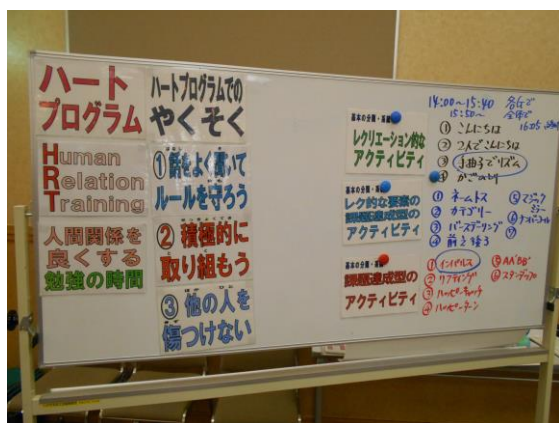 ハート
プログラム
Human
Relation
Training
人間関係を
良くする
勉強の時間
ハートプログラムでの
やくそく
①話をよく聞いて
ルールを守ろう
②積極的に
取り組もう
③他の人を
傷つけない
レクリエーション的な
アクティビティ
レク的な要素の
課題達成型の
アクティビティ
課題達成型の
アクティビティ
14:00~15:40 各仁で
15:50~ 全体で
① こんにちは
② 2人でこんにちは
③ 拍子でリズム
④ かごめとり
① ネームトス
② カテゴリー
③ バースデーリング
④ 前と後3
⑤ マジック
① インパルス
② リフティング
③ ハッピーキャッチ
④ ハッピーターン
⑤ AA'BB'
⑥ スターアップル